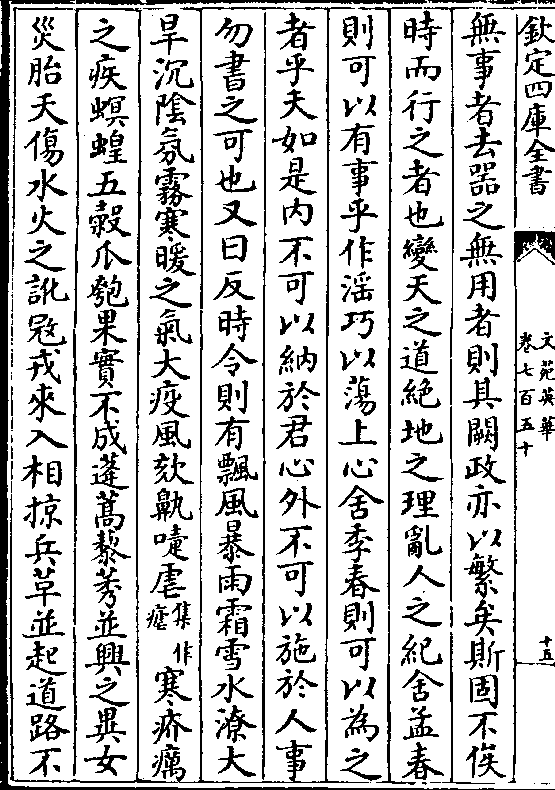 欽定四庫全書
文苑英華
卷七百五十
十五
無事者去器之無用者則其闕政亦以繁矣斯固不俟
時而行之者也變天之道絶地之理亂人之紀舍孟春
則可以有事乎作淫巧以蕩上心舍季春則可以為之
者乎夫如是内不可以納於君心外不可以施於人事
勿書之可也又曰反時令則有飄風暴雨霜雪水潦大
旱沉陰氛霧寒暖之氣大疫風欬鼽嚏虐集作瘧寒疥癘
之疾螟蝗五穀瓜瓠果實不成蓬蒿藜莠並興之異女
災胎夭傷水火之訛冦戎來入相掠兵草並起道路不